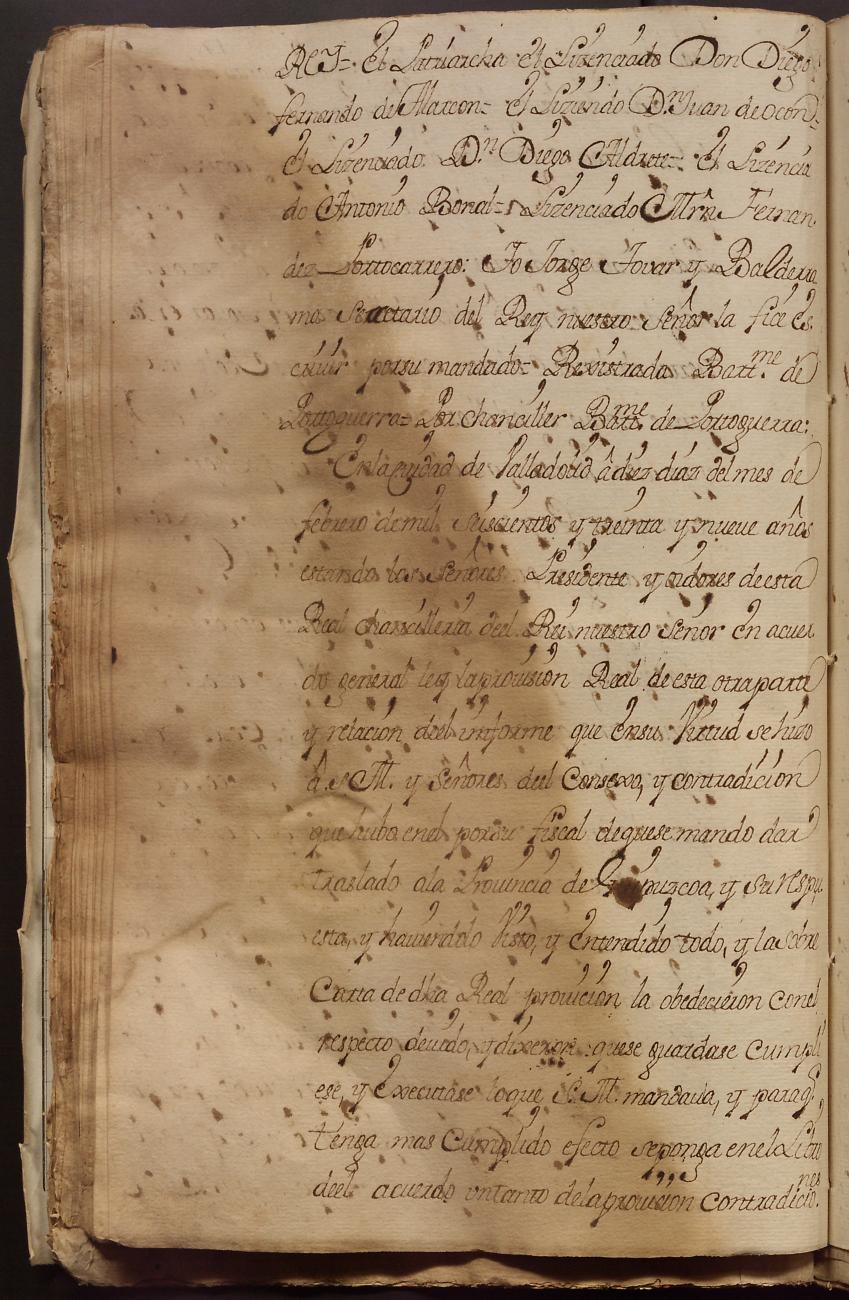 REY= El Patriarcha el Lizenciado Don Diego
fernando de Alarcon= el Lizendo D.n Juan de ocon=
el Lizenciado D.n Diego Aldrete= el Lizencia
do Antonio Bonal= Lizenciado Mrn Fernan
dez Portocarrero: Jo Jorge Tovar y Balderra
ma secretario del Rey nuestro señor la fice es
criuir porsu mandado= Rexistrada Bart.me de
Portoguerra= Por chanciller Bart.me de Portoguerra:
En la ciudad de Valladolid â diez diaz del mes de
febrero demil seiscientos y treinta y nueve años
estando los señores Presidente y oidores deesta
Real chancilleria deel Rei nuestro señor en acuer
do general lei la prouision Real de esta otra parte
y relacion deel informe que ensu Virtud se hizo
â. s M. y señores deel Consexo, y contradicion
que hubo enel porsu fiscal dequese mando dar
traslado ala Prouincia de Guipuzcoa, y su respu
esta, y hauiendolo Visto, y entendido todo, y la sobre
Carta de dha Real prouicion la obedecieron conel
respecto deuido, y dixeron: quese guardase cumpli
ese, y executase loque S. M. mandaua, y paraq.e
tenga mas cumplido efecto seponga enel Libro
deel acuerdo untanto dela prouision contradicio.nes